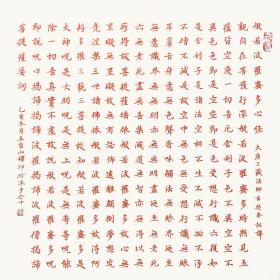 般若波羅蜜多心經 大唐三藏法師玄奘奉詔譯
觀自在菩薩行深般若波羅蜜多時照見五
蘊皆空度一切苦厄舍利子色不異空空不
異色色即是空空即是色受想行識亦復如
是舍利子是諸法空相不生不滅不垢不淨
不增不減是故空中無色無受想行識無眼
耳鼻舌身意無色聲香味觸法無眼界乃至
無意識界無無明亦無無明盡乃至無老死
亦無老死盡無苦集滅道無智亦無得以無
所得故菩提薩埵依般若波羅蜜多故心無
罣礙無罣礙故無有恐怖遠離顛倒夢想究
竟涅槃三世諸佛依般若波羅蜜多故得阿
耨多羅三藐三菩提故知般若波羅蜜多是
大神咒是大明咒是無上咒是無等等咒能
除一切苦真實不虛故說般若波羅蜜多咒
即說咒曰揭諦揭諦波羅揭諦波羅僧揭諦
菩提薩婆訶
月五台山釋印 沐手合十